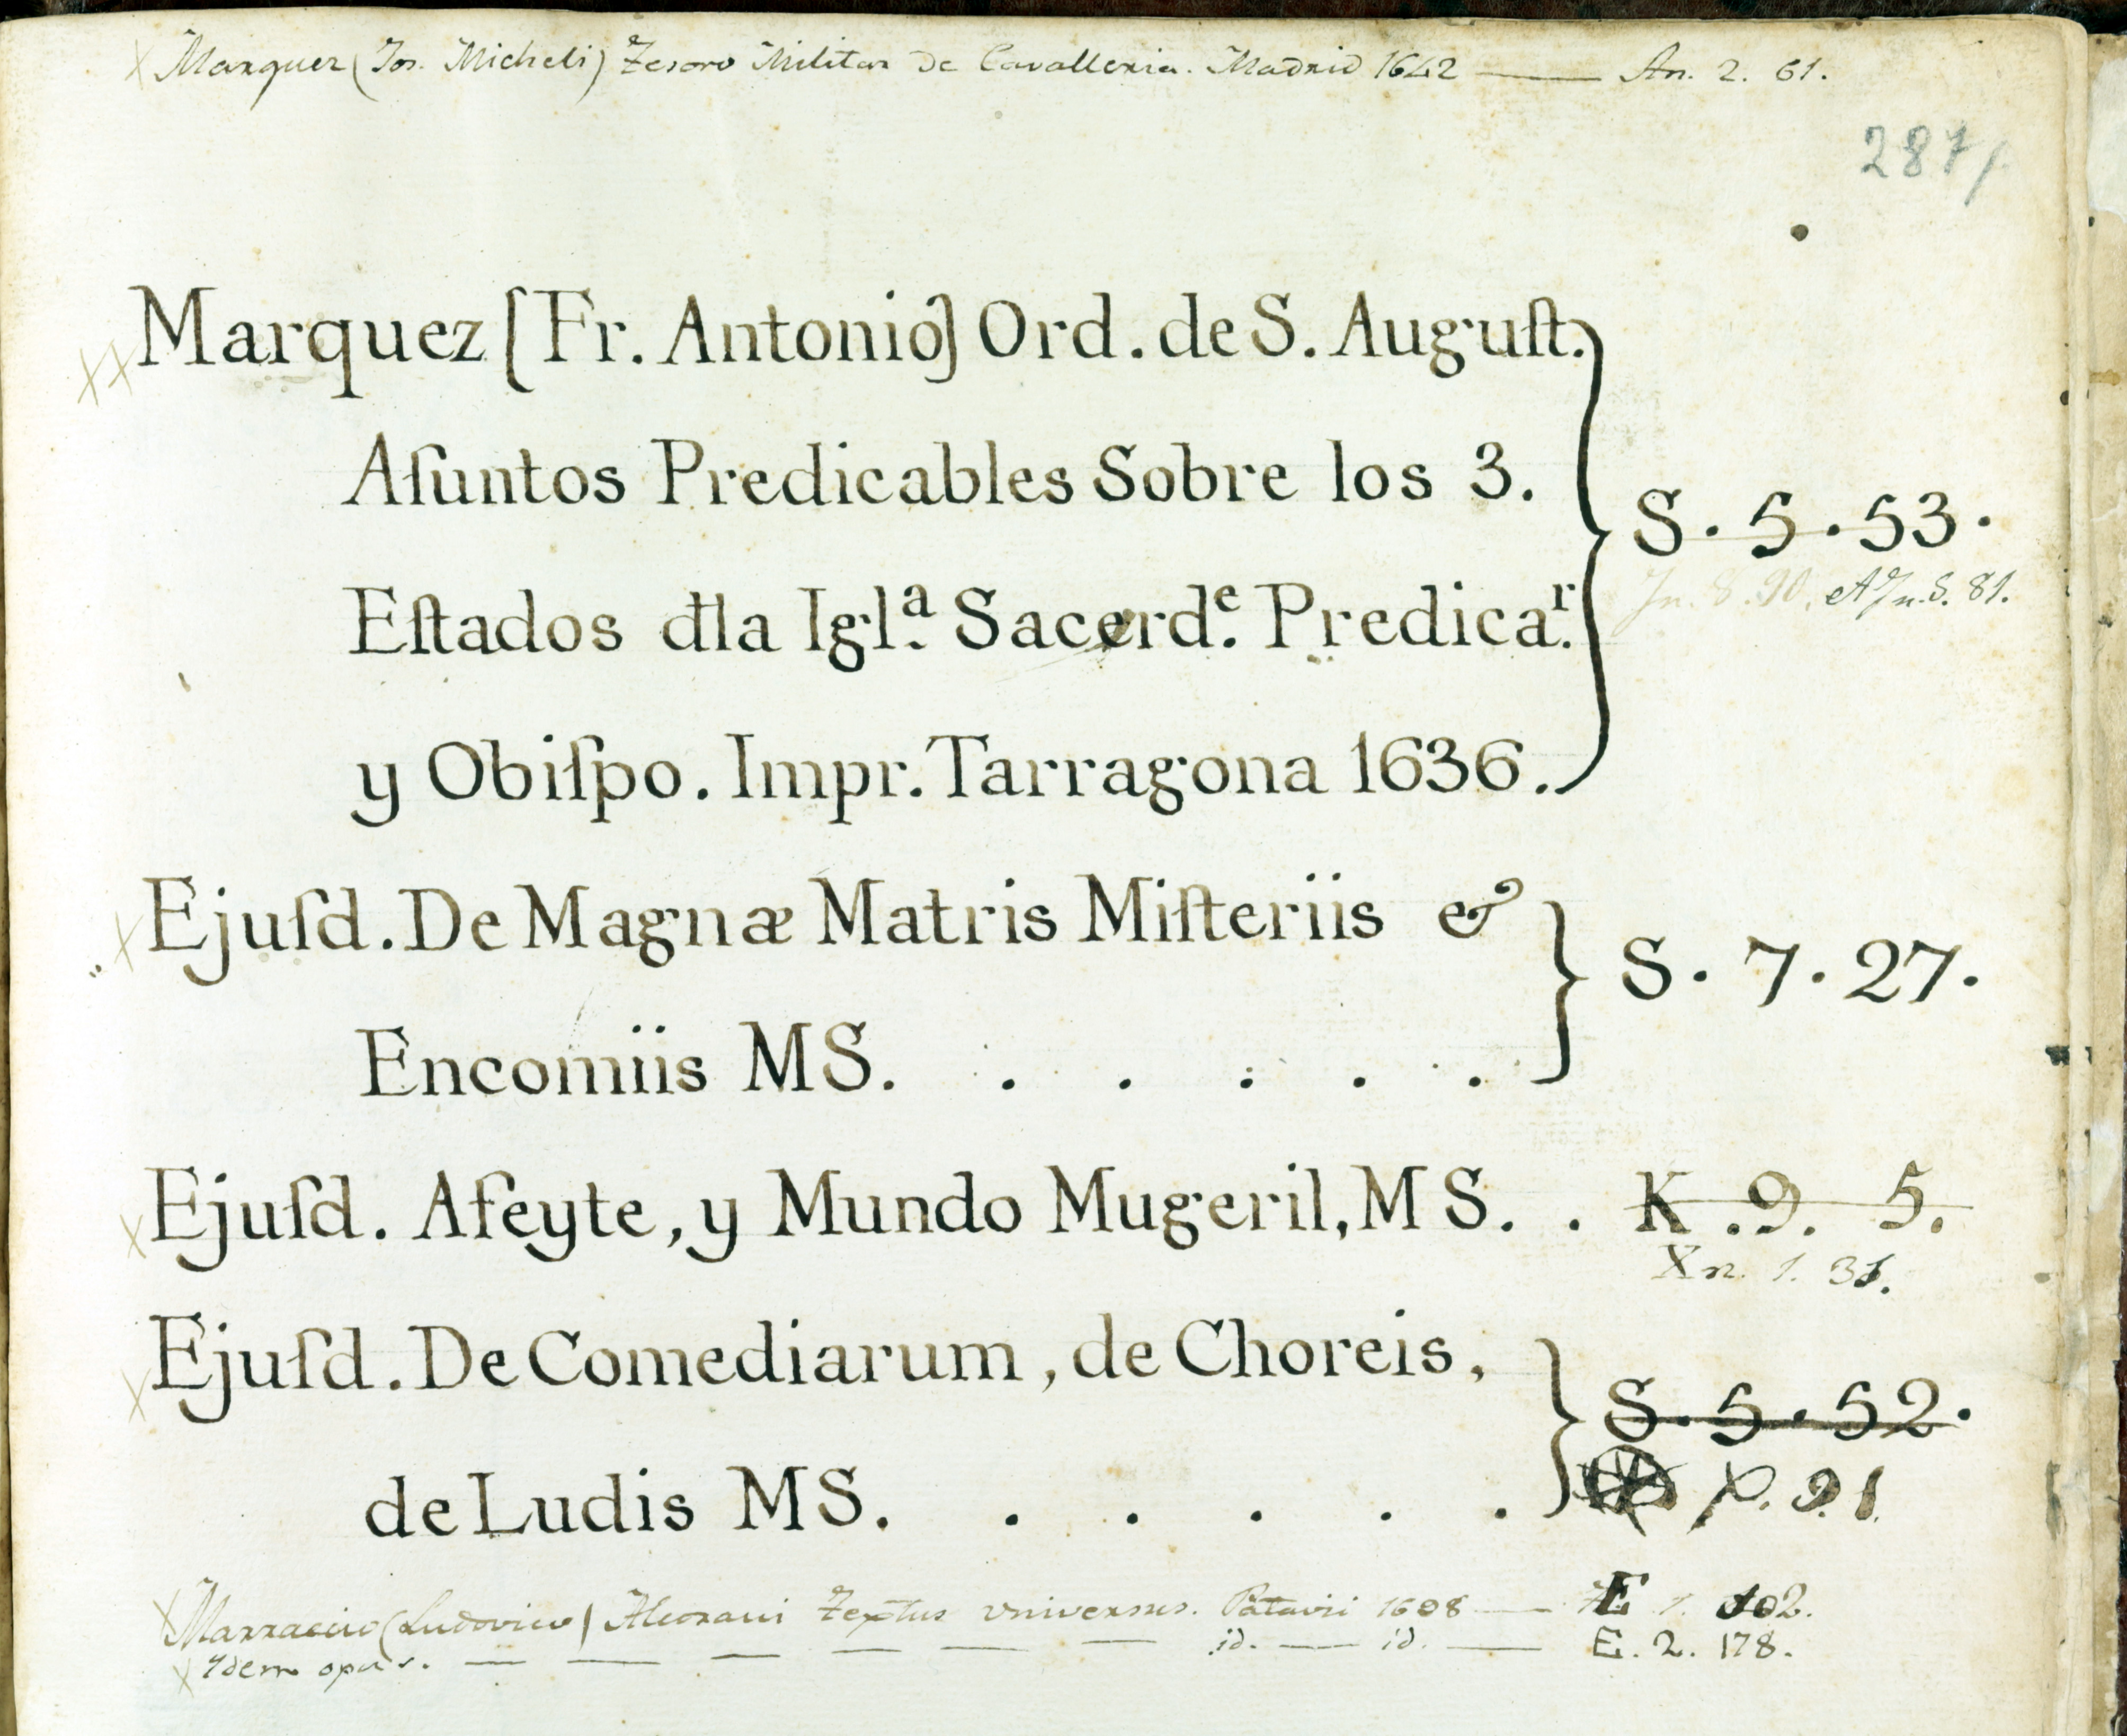 Marquez (Jos. Micheli) Tesoro Militar de Cavalleria. Madrid 1642 — An. 2. 61.
287
Marquez [Fr. Antonio] Ord. de S. Auguſt.
Aſuntos Predicables Sobre los 3.
S. 5. 53.
Eſtados đla Igl.ª Sacerd.ᵉ Predica.ʳ
Jn. 8. 90.
y Obiſpo. Impr. Tarragona 1636.
Ejuſd. De Magnæ Matris Miſteriis &
S. 7. 27.
Encomiis MS. . . . . .
Ejuſd. Afeyte, y Mundo Mugeril, MS. . K. 9. 5.
Xn. 1. 31.
Ejuſd. De Comediarum, de Choreis,
S. 5. 52.
de Ludis MS. . . . . .
Marraccio (Ludovico) Alcorani Textus universus. Patavii 1698 — E 1. 102.
Ydem opus. — — — — — — id. — id. — E. 2. 178.